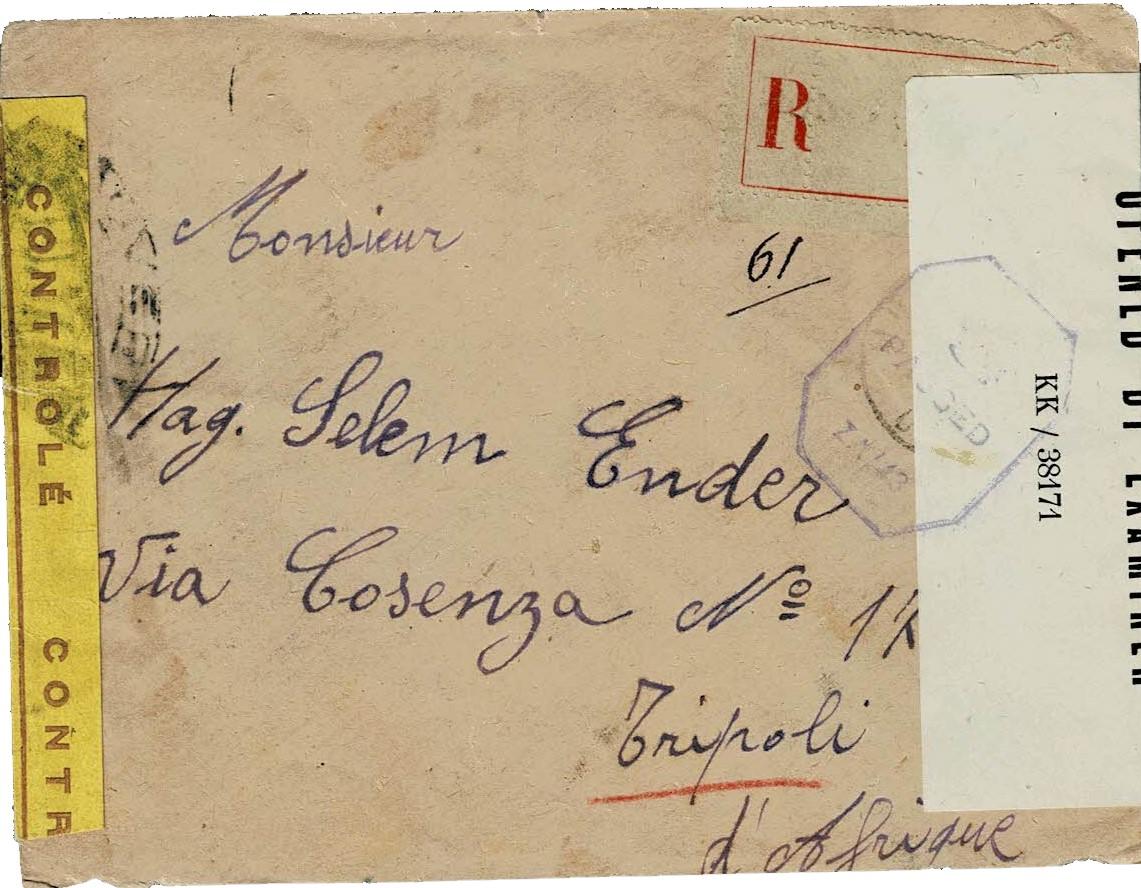 R
CONTROLÉ CONTR
Monsieur
61
PASSED
Hag. Selem Ender
KK / 38171
OPENED BY EXAMINER
Via Cosenza Nº
Tripoli
d'Afrique